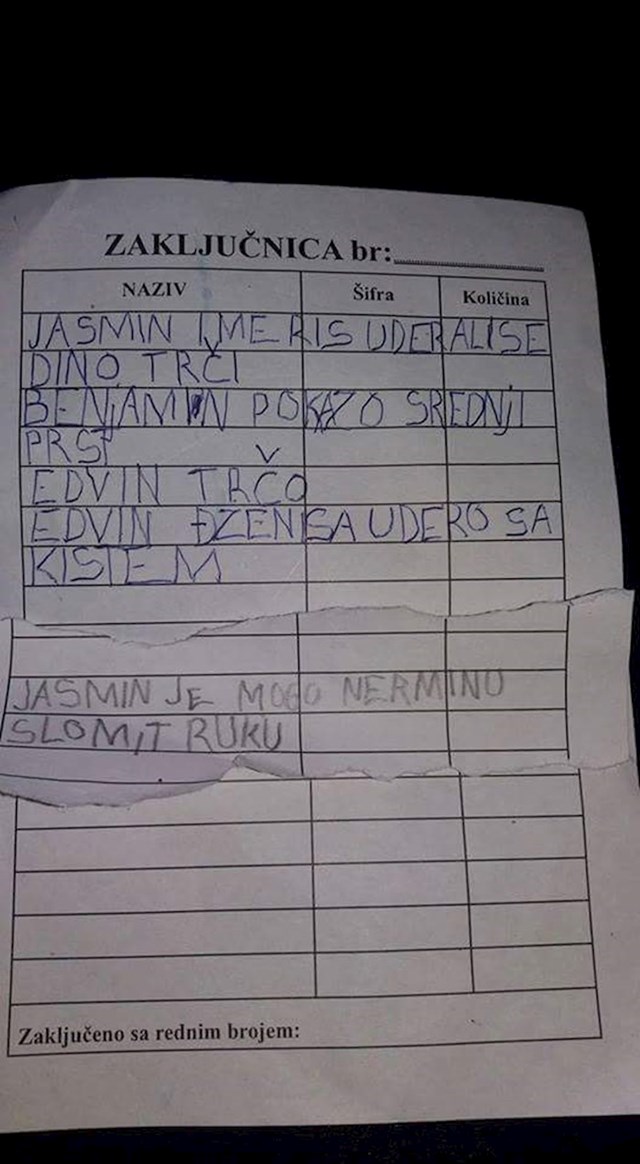 ZAKLJUČNICA br:
NAZIV Šifra Količina
JASMIN IMERIS UDERALISE
DINO TRČI
BENJAMIN POKAZO SREDNJI
PRST
EDVIN TRČO
EDVIN ĐZENISA UDERO SA
KISTEM
JASMIN JE MOGO NERMINU
SLOMIT RUKU
Zaključeno sa rednim brojem: